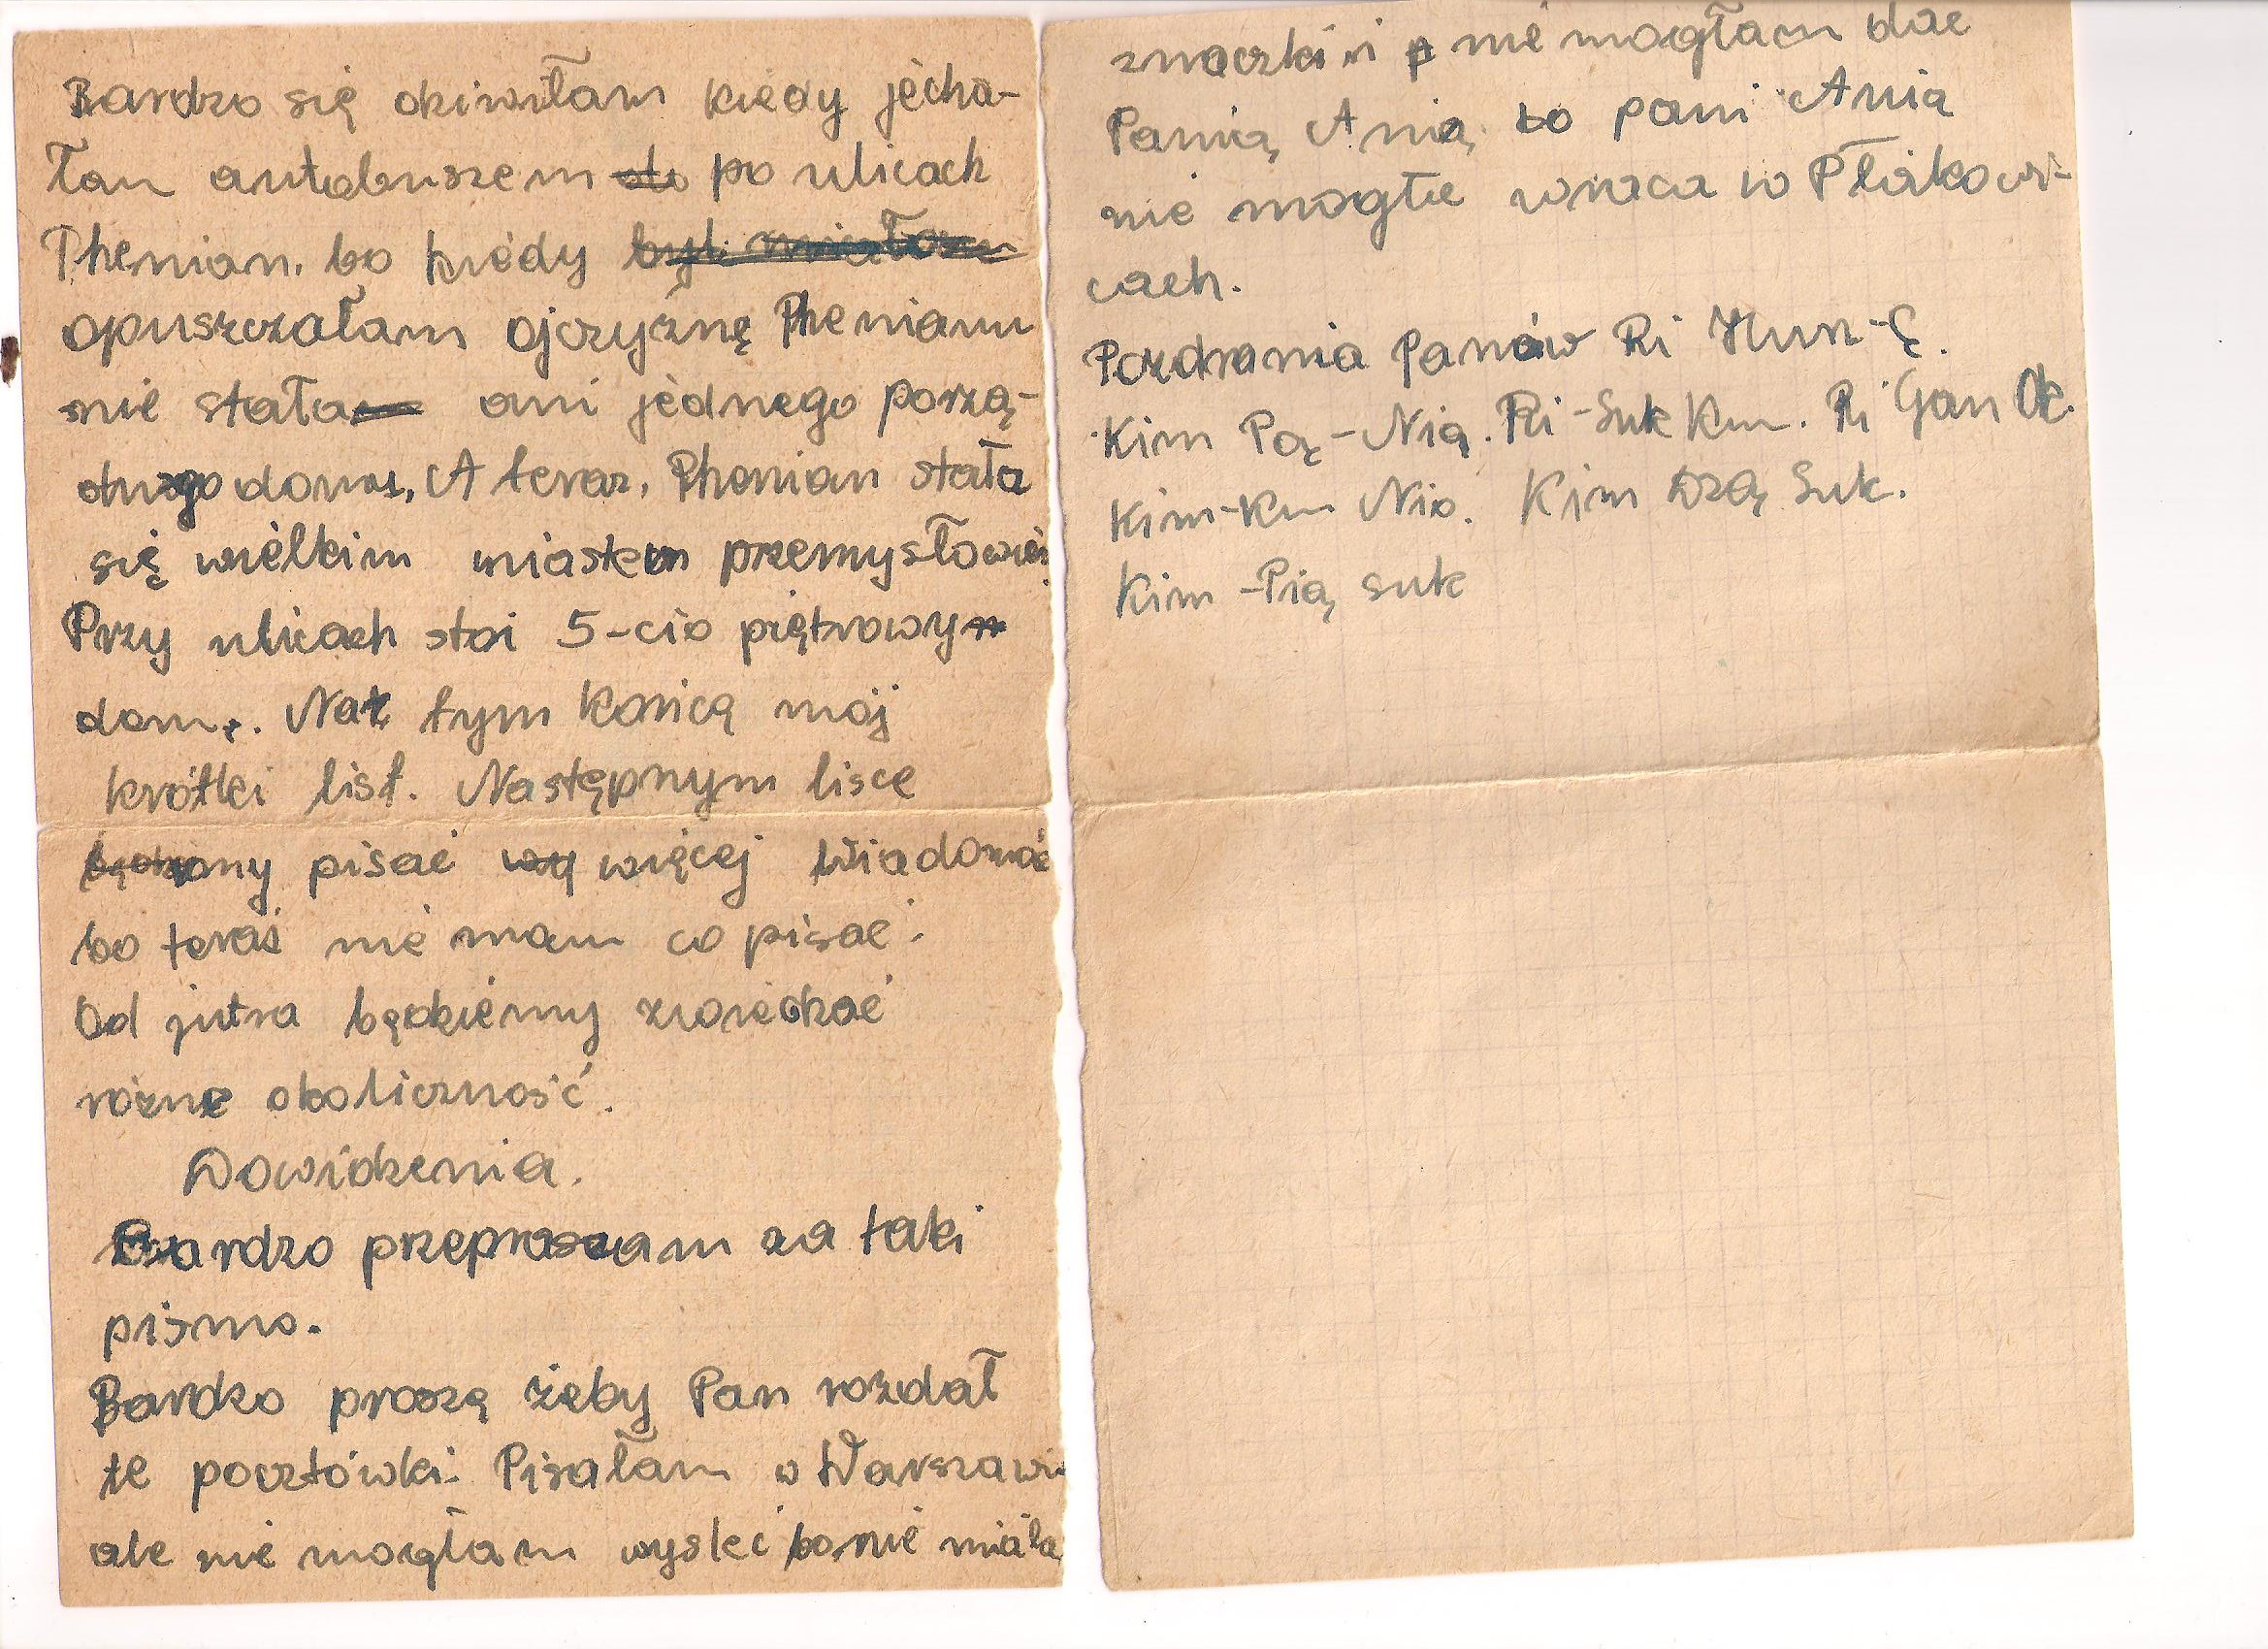 Bardzo się dziwiłam kiedy jecha-
łam autobuszem do po ulicach
Phenian. bo kiedy
opuszczałam ojczyznę Phenianu
nie stała ani jednego porzą-
dnego domu. A teraz. Phenian stała
się wielkim miastem przemysłowi
Przy ulicach stoi 5-cio piętrowy
dom. Na tym kończą mój
krótki list. Następnym lisce
będziemy pisać wię więcej wiadomoś
bo teraś nie mam co pisać.
Od jutra będziemy zwiedzać
różne okoliczność.
Dowidzenia.
Bardzo przepraszam za taki
pismo.
Bardzo proszą żeby Pan rozdał
te pocztówki. Pisałam w Warszawi
ale nie mogłam wysłać bo nie miała
znaczki i p nie mogłam dać
Panią Anią, bo pani Anią
nie mogła wraca w Płakowi-
cach.
Pozdrania Panów Ri Hun-Ę.
Kim Pą-Nią. Ri-Suk Kun. Ri Gan Ok.
Kim-Kun Nio. Kim Dzą Suk.
Kim-Pią suk